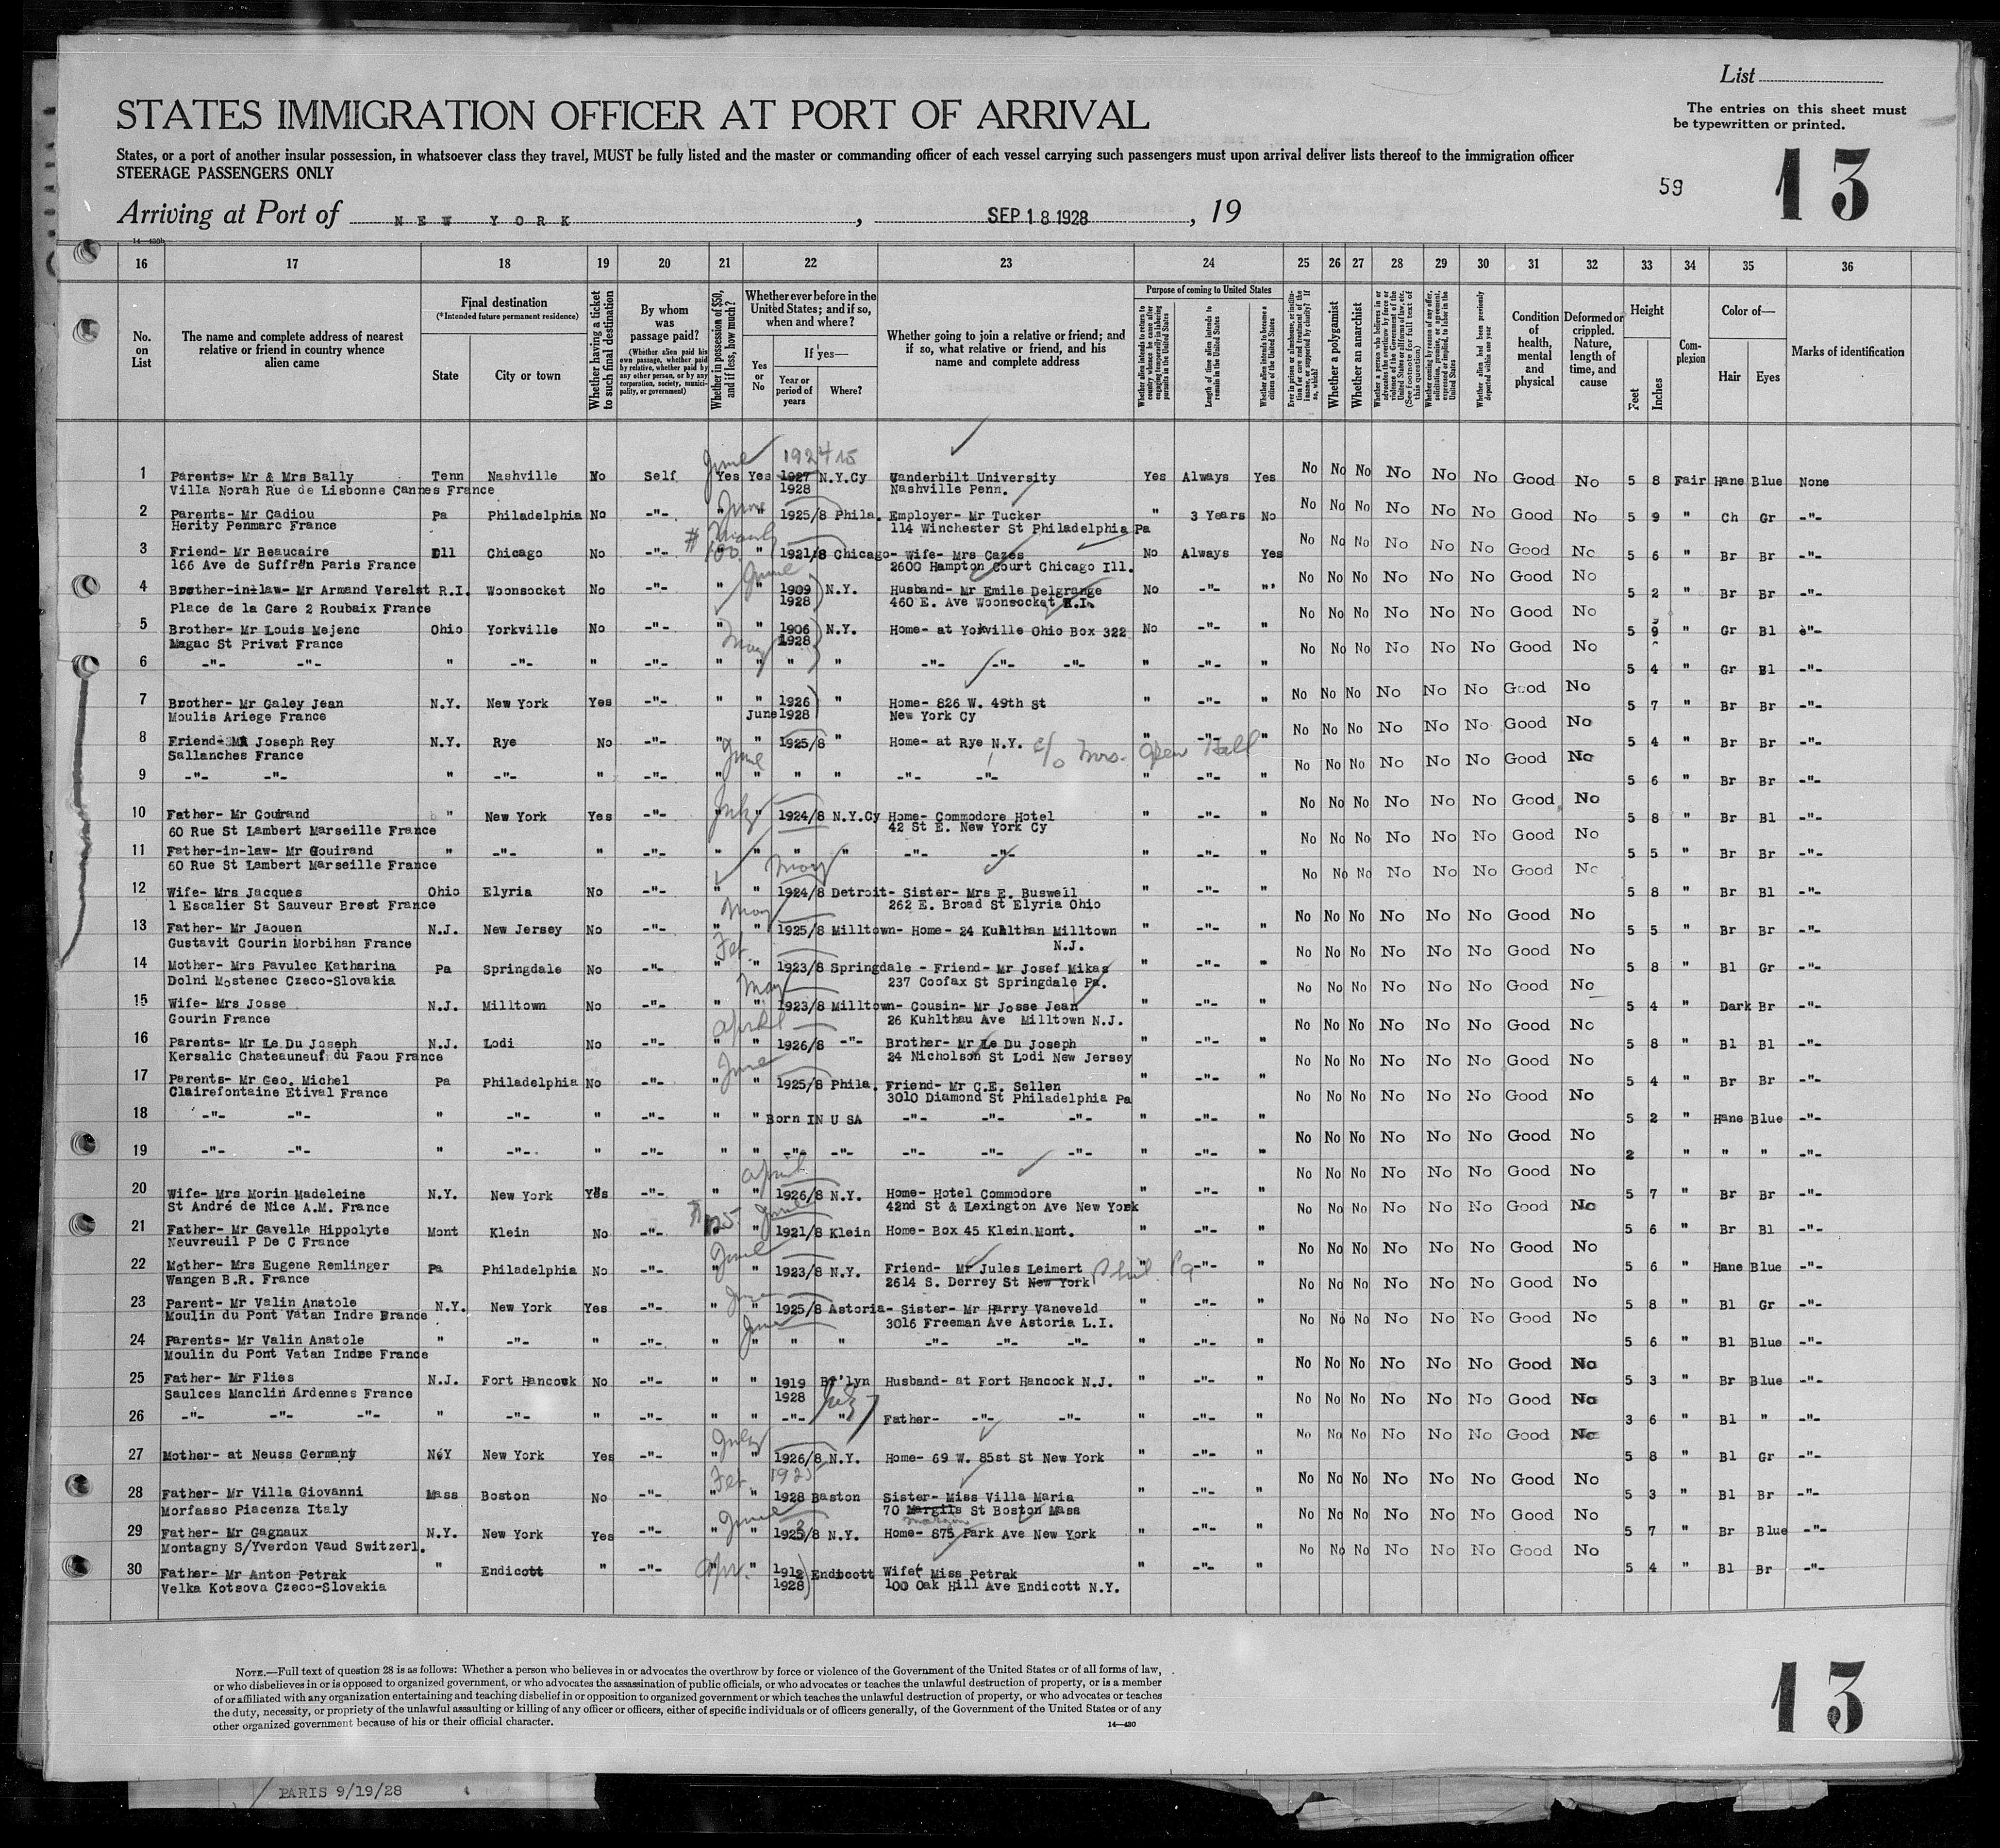 List
STATES IMMIGRATION OFFICER AT PORT OF ARRIVAL
The entries on this sheet must
be typewritten or printed.
States, or a port of another insular possession, in whatsoever class they travel, MUST be fully listed and the master or commanding officer of each vessel carrying such passengers must upon arrival deliver lists thereof to the immigration officer
STEERAGE PASSENGERS ONLY
59
13
Arriving at Port of NEW YORK, SEP 18 1928, 19
14—430b
16 17 18 19 20 21 22 23 24 25 26 27 28 29 30 31 32 33 34 35 36
No. on List
The name and complete address of nearest relative or friend in country whence alien came
Final destination
(*Intended future permanent residence)
State
City or town
Whether having a ticket to such final destination
By whom was passage paid?
(Whether alien paid his own passage, whether paid by relative, whether paid by any other person, or by any corporation, society, municipality, or government)
Whether in possession of $50, and if less, how much?
Whether ever before in the United States; and if so, when and where?
Yes or No
If yes—
Year or period of years
Where?
Whether going to join a relative or friend; and if so, what relative or friend, and his name and complete address
Purpose of coming to United States
Whether alien intends to return to country whence he came after engaging temporarily in laboring pursuits in the United States
Length of time alien intends to remain in the United States
Whether alien intends to become a citizen of the United States
Ever in prison or almshouse, or institution for care and treatment of the insane, or supported by charity? If so, which?
Whether a polygamist
Whether an anarchist
Whether a person who believes in or advocates the overthrow by force or violence of the Government of the United States or all forms of law, etc. (See footnote for full text of this question)
Whether coming by reason of any offer, solicitation, promise, or agreement, expressed or implied, to labor in the United States
Whether alien had been previously deported within one year
Condition of health, mental and physical
Deformed or crippled. Nature, length of time, and cause
Height
Feet
Inches
Complexion
Color of—
Hair
Eyes
Marks of identification
June 1924 15
1 Parents- Mr & Mrs Bally Tenn Nashville No Self Yes Yes 1927 N.Y.Cy Vanderbilt University Yes Always Yes No No No No No No Good No 5 8 Fair Hane Blue None
Villa Norah Rue de Lisbonne Cannes France 1928 Nashville Penn.
2 Parents- Mr Cadiou Pa Philadelphia No -"- " " 1925/8 Phila. Employer- Mr Tucker " 3 Years No No No No No No No Good No 5 9 " Ch Gr -"-
Herity Penmarc France 114 Winchester St Philadelphia Pa
3 Friend- Mr Beaucaire Ill Chicago No -"- $ 100 " 1921/8 Chicago- Wife- Mrs Cazes No Always Yes No No No No No No Good No 5 6 " Br Br -"-
166 Ave de Suffren Paris France 2600 Hampton Court Chicago Ill.
June
4 Brother-in-law- Mr Armand Verelst R.I. Woonsocket No -"- " " 1909 N.Y. Husband- Mr Emile Delgrange No -"- "' No No No No No No Good No 5 2 " Br Br -"-
Place de la Gare 2 Roubaix France 1928 460 E. Ave Woonsocket R.I.
5 Brother- Mr Louis Mejenc Ohio Yorkville No -"- " " 1906 N.Y. Home- at Yorkville Ohio Box 322 No -"- " No No No No No No Good No 5 9 " Gr Bl -"-
Magac St Privat France May 1928
6 -"- -"- " -"- " -"- " " " " -"- -"- -"- " -"- " No No No No No No Good No 5 4 " Gr Bl -"-
7 Brother- Mr Galey Jean N.Y. New York Yes -"- " " 1926 " Home- 826 W. 49th St " -"- " No No No No No No Good No 5 7 " Br Br -"-
Moulis Ariege France June 1928 New York Cy
8 Friend- Mr Joseph Rey N.Y. Rye No -"- " " 1925/8 " Home- at Rye N.Y. c/o Mrs. Hall " -"- " No No No No No No Good No 5 4 " Br Br -"-
Sallanches France June
9 -"- -"- " -"- " -"- " " " " -"- -"- " -"- " No No No No No No Good No 5 6 " Br Br -"-
10 Father- Mr Gouirand " New York Yes -"- " July " 1924/8 N.Y.Cy Home- Commodore Hotel " -"- " No No No No No No Good No 5 8 " Br Bl -"-
60 Rue St Lambert Marseille France 42 St E. New York Cy
11 Father-in-law- Mr Gouirand " -"- " -"- " " " " -"- -"- " -"- " No No No No No No Good No 5 5 " Br Br -"-
60 Rue St Lambert Marseille France May
12 Wife- Mrs Jacques Ohio Elyria No -"- " " 1924/8 Detroit- Sister- Mrs E. Buswell " -"- " No No No No No No Good No 5 8 " Br Bl -"-
1 Escalier St Sauveur Brest France 262 E. Broad St Elyria Ohio
May
13 Father- Mr Jaouen N.J. New Jersey No -"- " " 1925/8 Milltown- Home- 24 Kuhlthan Milltown " -"- " No No No No No No Good No 5 5 " Br Br -"-
Gustavit Gourin Morbihan France N.J.
Fer.
14 Mother- Mrs Pavulec Katharina Pa Springdale No -"- " " 1923/8 Springdale - Friend- Mr Josef Mikas " -"- " No No No No No No Good No 5 8 " Bl Gr -"-
Dolni Mostenec Czeco-Slovakia 237 Coofax St Springdale Pa.
May
15 Wife- Mrs Josse N.J. Milltown No -"- " " 1923/8 Milltown- Cousin- Mr Josse Jean " -"- " No No No No No No Good No 5 4 " Dark Br -"-
Gourin France 26 Kuhlthau Ave Milltown N.J.
April
16 Parents- Mr Le Du Joseph N.J. Lodi No -"- " " 1926/8 -"- Brother- Mr Le Du Joseph " -"- " No No No No No No Good No 5 8 " Bl Bl -"-
Kersalic Chateauneuf du Faou France 24 Nicholson St Lodi New Jersey
June
17 Parents- Mr Geo. Michel Pa Philadelphia No -"- " " 1925/8 Phila. Friend- Mr C.E. Sellen " -"- " No No No No No No Good No 5 4 " Br Br -"-
Clairefontaine Etival France 3010 Diamond St Philadelphia Pa
18 -"- -"- " -"- " -"- " " Born IN U SA -"- -"- -"- " -"- " No No No No No No Good No 5 2 " Hane Blue -"-
19 -"- -"- " -"- " -"- " " -"- -"- -"- -"- -"- " -"- " No No No No No No Good No 2 " " " -"-
April
20 Wife- Mrs Morin Madeleine N.Y. New York Yes -"- " " 1926/8 N.Y. Home- Hotel Commodore " -"- " No No No No No No Good No 5 7 " Br Br -"-
St André de Nice A.M. France 42nd St & Lexington Ave New York
21 Father- Mr Gavelle Hippolyte Mont Klein No -"- June " 1921/8 Klein Home- Box 45 Klein Mont. " -"- " No No No No No No Good No 5 6 " Br Bl -"-
Neuvreuil P De C France
June
22 Mother- Mrs Eugene Remlinger Pa Philadelphia No -"- " " 1923/8 N.Y. Friend- Mr Jules Leimert " -"- " No No No No No No Good No 5 6 " Hane Blue -"-
Wangen B.R. France 2614 S. Derrey St New York Phil. Pa
June
23 Parent- Mr Valin Anatole N.Y. New York Yes -"- " " 1925/8 Astoria- Sister- Mr Harry Vaneveld " -"- " No No No No No No Good No 5 8 " Bl Gr -"-
Moulin du Pont Vatan Indre France 3016 Freeman Ave Astoria L.I.
June
24 Parents- Mr Valin Anatole " -"- " -"- " " " " -"- -"- -"- " -"- " No No No No No No Good No 5 6 " Bl Blue -"-
Moulin du Pont Vatan Indre France
25 Father- Mr Flies N.J. Fort Hancock No -"- " " 1919 Br'lyn Husband- at Fort Hancock N.J. " -"- " No No No No No No Good No 5 3 " Br Blue -"-
Saulces Manclin Ardennes France 1928 July
26 -"- -"- -"- " -"- " -"- " " -"- " Father- -"- -"- " -"- " No No No No No No Good No 3 6 " Bl " -"-
July
27 Mother- at Neuss Germany N.Y New York Yes -"- " " 1926/8 N.Y. Home- 69 W. 85st St New York " -"- " No No No No No No Good No 5 8 " Bl Gr -"-
Fer. 1925
28 Father- Mr Villa Giovanni Mass Boston No -"- " " 1928 Baston Sister- Miss Villa Maria " -"- " No No No No No No Good No 5 3 " Bl Br -"-
Morfasso Piacenza Italy 70 Margils St Boston Mass
June
29 Father- Mr Gagnaux N.Y. New York Yes -"- " " 1925/8 N.Y. Home- 875 Park Ave New York " -"- " No No No No No No Good No 5 7 " Br Blue -"-
Montagny S/Yverdon Vaud Switzerl.
30 Father- Mr Anton Petrak " Endicott " -"- Apr. " 1912 Endicott Wife- Miss Petrak " -"- " No No No No No No Good No 5 4 " Bl Br -"-
Velka Kotsova Czeco-Slovakia 1928 100 Oak Hill Ave Endicott N.Y.
NOTE.—Full text of question 28 is as follows: Whether a person who believes in or advocates the overthrow by force or violence of the Government of the United States or of all forms of law,
or who disbelieves in or is opposed to organized government, or who advocates the assassination of public officials, or who advocates or teaches the unlawful destruction of property, or is a member
of or affiliated with any organization entertaining and teaching disbelief in or opposition to organized government or which teaches the unlawful destruction of property, or who advocates or teaches
the duty, necessity, or propriety of the unlawful assaulting or killing of any officer or officers, either of specific individuals or of officers generally, of the Government of the United States or of any
other organized government because of his or their official character.
14—430
13
PARIS 9/19/28